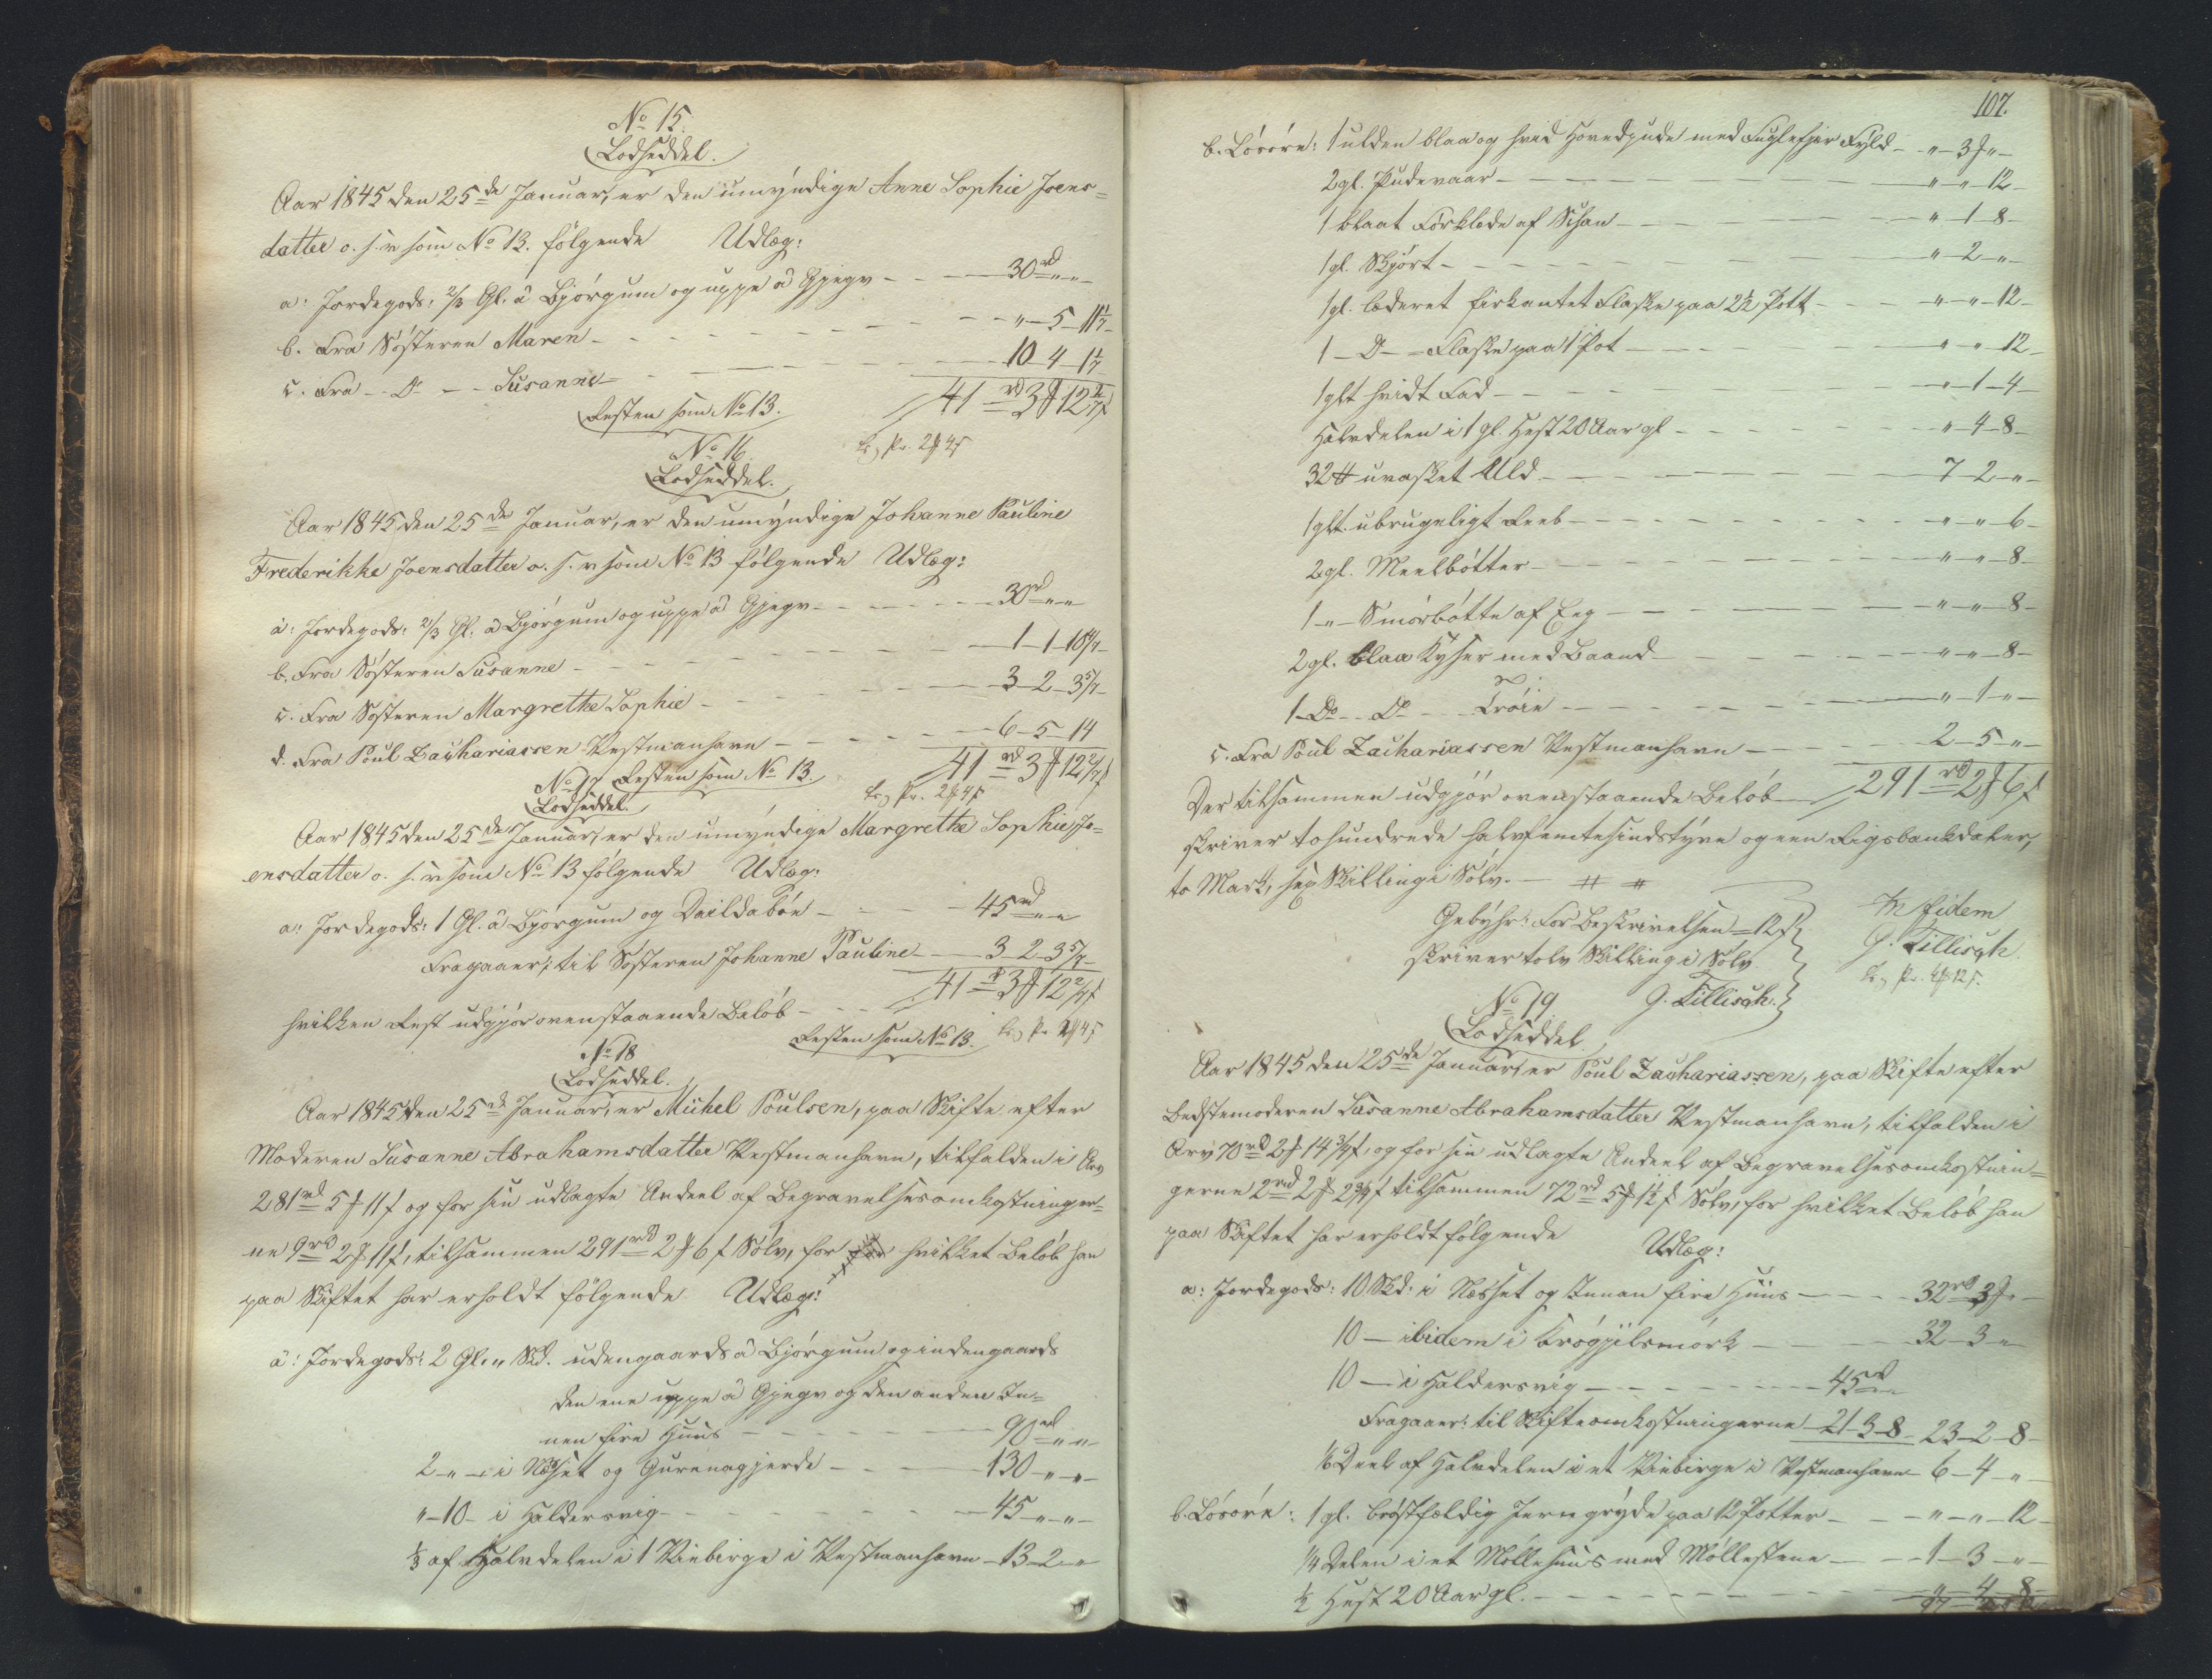 No 15.
Lodseddel.
Aar 1845 den 25de Januar, er den umyndige Anne Sophie Joens=
datter o. s. v som No 13. følgende Udlæg:
a: Jordegods: 2/3 Gl. â Bjørgum og uppe â Gjegv - - - 30rd " "
b. Fra Søsteren Maren - - - " - 5 - 11 1/7
c. Fra - Do - Susanne - - - 10 - 4 - 1 1/7
41rd 3 ℳ 12 2/7 ß
Resten som No 13.
No 16.
Lodseddel.
Aar 1845 den 25de Januar, er den umyndige Johanne Pauline
Frederikke Joensdatter o. s. v som No 13 følgende Udlæg:
a: Jordegods: 2/3 Gl. â Bjørgum og uppe â Gjegv - - - 30rd " "
b. Fra Søsteren Susanne - - - 1 - 1 - 10 4/7
c. Fra Søsteren Margrethe Sophie - - - 3 - 2 - 3 5/7
d. Fra Poul Zachariassen Vestmanhavn - - - 6 - 5 - 14
41rd 3 ℳ 12 2/7 ß
No 17 Resten som No 13.
Lodseddel.
Aar 1845 den 25de Januar, er den umyndige Margrethe Sophie Jo=
ensdatter o. s. v som No 13 følgende Udlæg:
a: Jordegods: 1 Gl. â Bjørgum og Daildabøe - - 45rd " "
Fragaaer: til Søsteren Johanne Pauline - 3 - 2 - 3 5/7
hvilken Rest udgjør ovenstaaende Beløb - - - 41rd 3 ℳ 12 2/7 ß
Resten som No 13.
No 18
Lodseddel.
Aar 1845 den 25de Januar, er Michel Poulsen, paa Skifte efter
Moderen Susanne Abrahamsdatter Vestmanhavn, tilfalden i Arv
281rd 5 ℳ 11 ß og for sin udlagte Andeel af Begravelsesomkostninger=
ne 9rd 2 ℳ 11 ß, tilsammen 291rd 2 ℳ 6 ß Sølv, for hvilket Beløb han
paa Skiftet har erholdt følgende Udlæg:
a: Jordegods: 2 Gl. " Skd. udengaards â Bjørgum og indengaards
den ene uppe â Gjegv og den anden In=
nen fire Huus - - - 90rd " "
2 - " - i Næsset og Gurenagjerde - - - 130 - " - "
" - 10 - i Haldersvig - - - 45 - " - "
1/3 af Halvdelen i 1 Riebirge i Vestmanhavn - 13 - 2 - "
107.
b. Løsøre: 1 ulden blaa og hvid Hovedpude med Fuglefjer Fyld - " - 3 ℳ " -
2 gl. Pudevaar - - - " - " - 12 -
1 blaat Forklæde af Sisan - - - " - 1 - 8 -
1 gl. Skjørt - - - " - 2 - " -
1 gl. læderet firkantet Flaske paa 2 1/2 Pott - - - " - " - 12 -
1 - Do - Flaske paa 1 Pot - - - " - " - 12 -
1 glt hvidt Fad - - - " - 1 - 4 -
Halvdelen i 1 gl. Hest 20 Aar gl - - - " - 4 - 8 -
32 ℔ uvasket Uld - - - 7 - 2 - " -
1 glt. ubrugeligt Reeb - - - " - " - 6 -
2 gl. Meelbøtter - - - " - " - 8 -
1 - " - Smørbøtte af Eeg - - - " - " - 8 -
2 gl. blaa Kyser med Baand - - - " - " - 8 -
1 - Do - Do - Trøie - - - " - 1 - " -
c. Fra Poul Zachariassen Vestmanhavn - - - 2 - 5 - " -
Der tilsammen udgjør ovenstaaende Beløb - 291rd 2 ℳ 6 ß
skriver tohundrede halvfemtesindstyve og een Rigsbankdaler,
to Mark, sex Skilling i Sølv.
Gebyhr: For Beskrivelsen = 12 ß,
skriver tolv Skilling i Sølv.
G. Tillisch.
In fidem
G. Tillisch.
No 19.
Lodseddel
Aar 1845 den 25de Januar, er Poul Zachariassen, paa Skifte efter
Bedstemoderen Susanne Abrahamsdatter Vestmanhavn, tilfalden i
Arv 70rd 2 ℳ 14 3/4 ß, og for sin udlagte Andeel af Begravelsesomkostnin=
gerne 2rd 2 ℳ 2 3/4 ß tilsammen 72rd 5 ℳ 1 1/2 ß Sølv, for hvilket Beløb han
paa Skiftet har erholdt følgende Udlæg:
a: Jordegods: 10 Skd: i Næsset og Innan fire Huus - - - 32rd 3 ℳ " -
10 - ibidem i Krógjilsmørk - - - 32 - 3 - "
10 - i Haldersvig - - - 45rd " "
Fragaaer: til Skifteomkostningerne 21 - 3 - 8 - 23 - 2 - 8 -
1/6 Deel af Halvdelen i et Riebirge i Vestmanhavn - 6 - 4 - " -
b. Løsøre: 1 gl. brøstfældig Jerngryde paa 12 Potter - - " - " - 12 -
1/4 Delen i et Møllehuus med Møllestene - - - 1 - 3 - " -
1/2 Hest 20 Aar gl. - - - " - 4 - 8 -